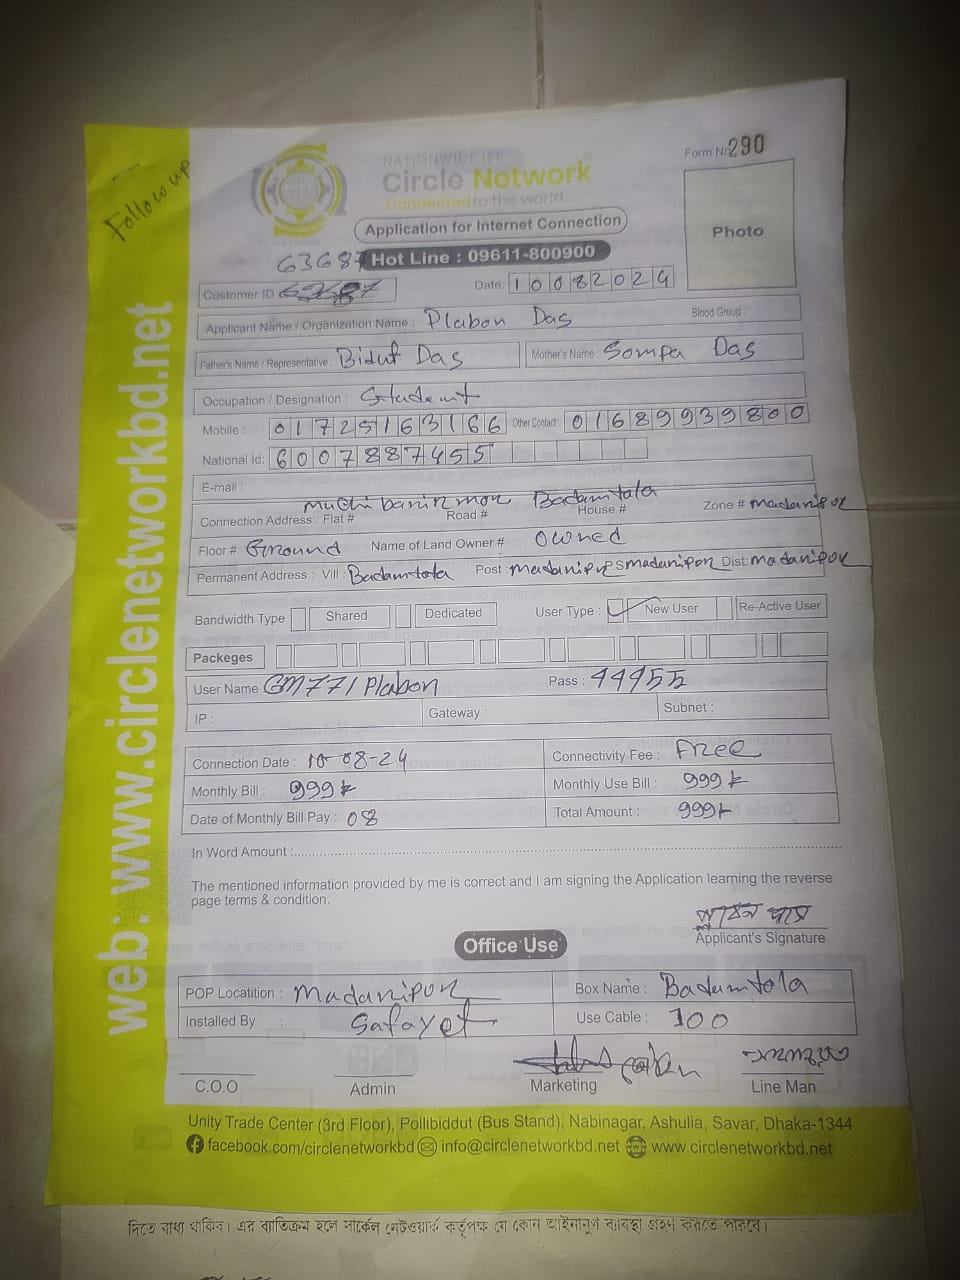 Follow up
web: www.circlenetworkbd.net
NATIONWIDE ISP
Circle Network
Connected to the world...
Form No 290
Application for Internet Connection
Photo
63687 Hot Line : 09611-800900
Customer ID
Date: 10082024
Applicant Name / Organization Name : Plabon Das
Blood Group :
Father's Name / Representative : Bidut Das Mother's Name : Sompa Das
Occupation / Designation : Student
Mobile : 01725163166 Other Contact : 01689939800
National Id: 6007887455
E-mail :
Connection Address : Flat # Road # Badamtola House # Zone # Madaripur
Floor # Ground Name of Land Owner # Owned
Permanent Address : Vill : Badamtola Post : Madaripur PS Madaripur Dist: Madaripur
Bandwidth Type Shared Dedicated User Type : New User Re-Active User
Packeges
User Name GM771Plabon Pass : 44455
IP : Gateway : Subnet :
Connection Date : 10-08-24 Connectivity Fee : Free
Monthly Bill : 999 Monthly Use Bill : 999
Date of Monthly Bill Pay : 08 Total Amount : 999
In Word Amount :
The mentioned information provided by me is correct and I am signing the Application learning the reverse
page terms & condition.
প্লাবন দাস
Applicant's Signature
Office Use
POP Locatition : Madaripur Box Name : Badamtola
Installed By : Safayet Use Cable : 100
C.O.O Admin Marketing Line Man
Unity Trade Center (3rd Floor), Pollibiddut (Bus Stand), Nabinagar, Ashulia, Savar, Dhaka-1344
facebook.com/circlenetworkbd info@circlenetworkbd.net www.circlenetworkbd.net
দিতে বাধ্য থাকিব। এর ব্যতিক্রম হলে সার্কেল নেটওয়ার্ক কর্তৃপক্ষ যে কোন আইনানুগ ব্যবস্থা গ্রহণ করতে পারবে।